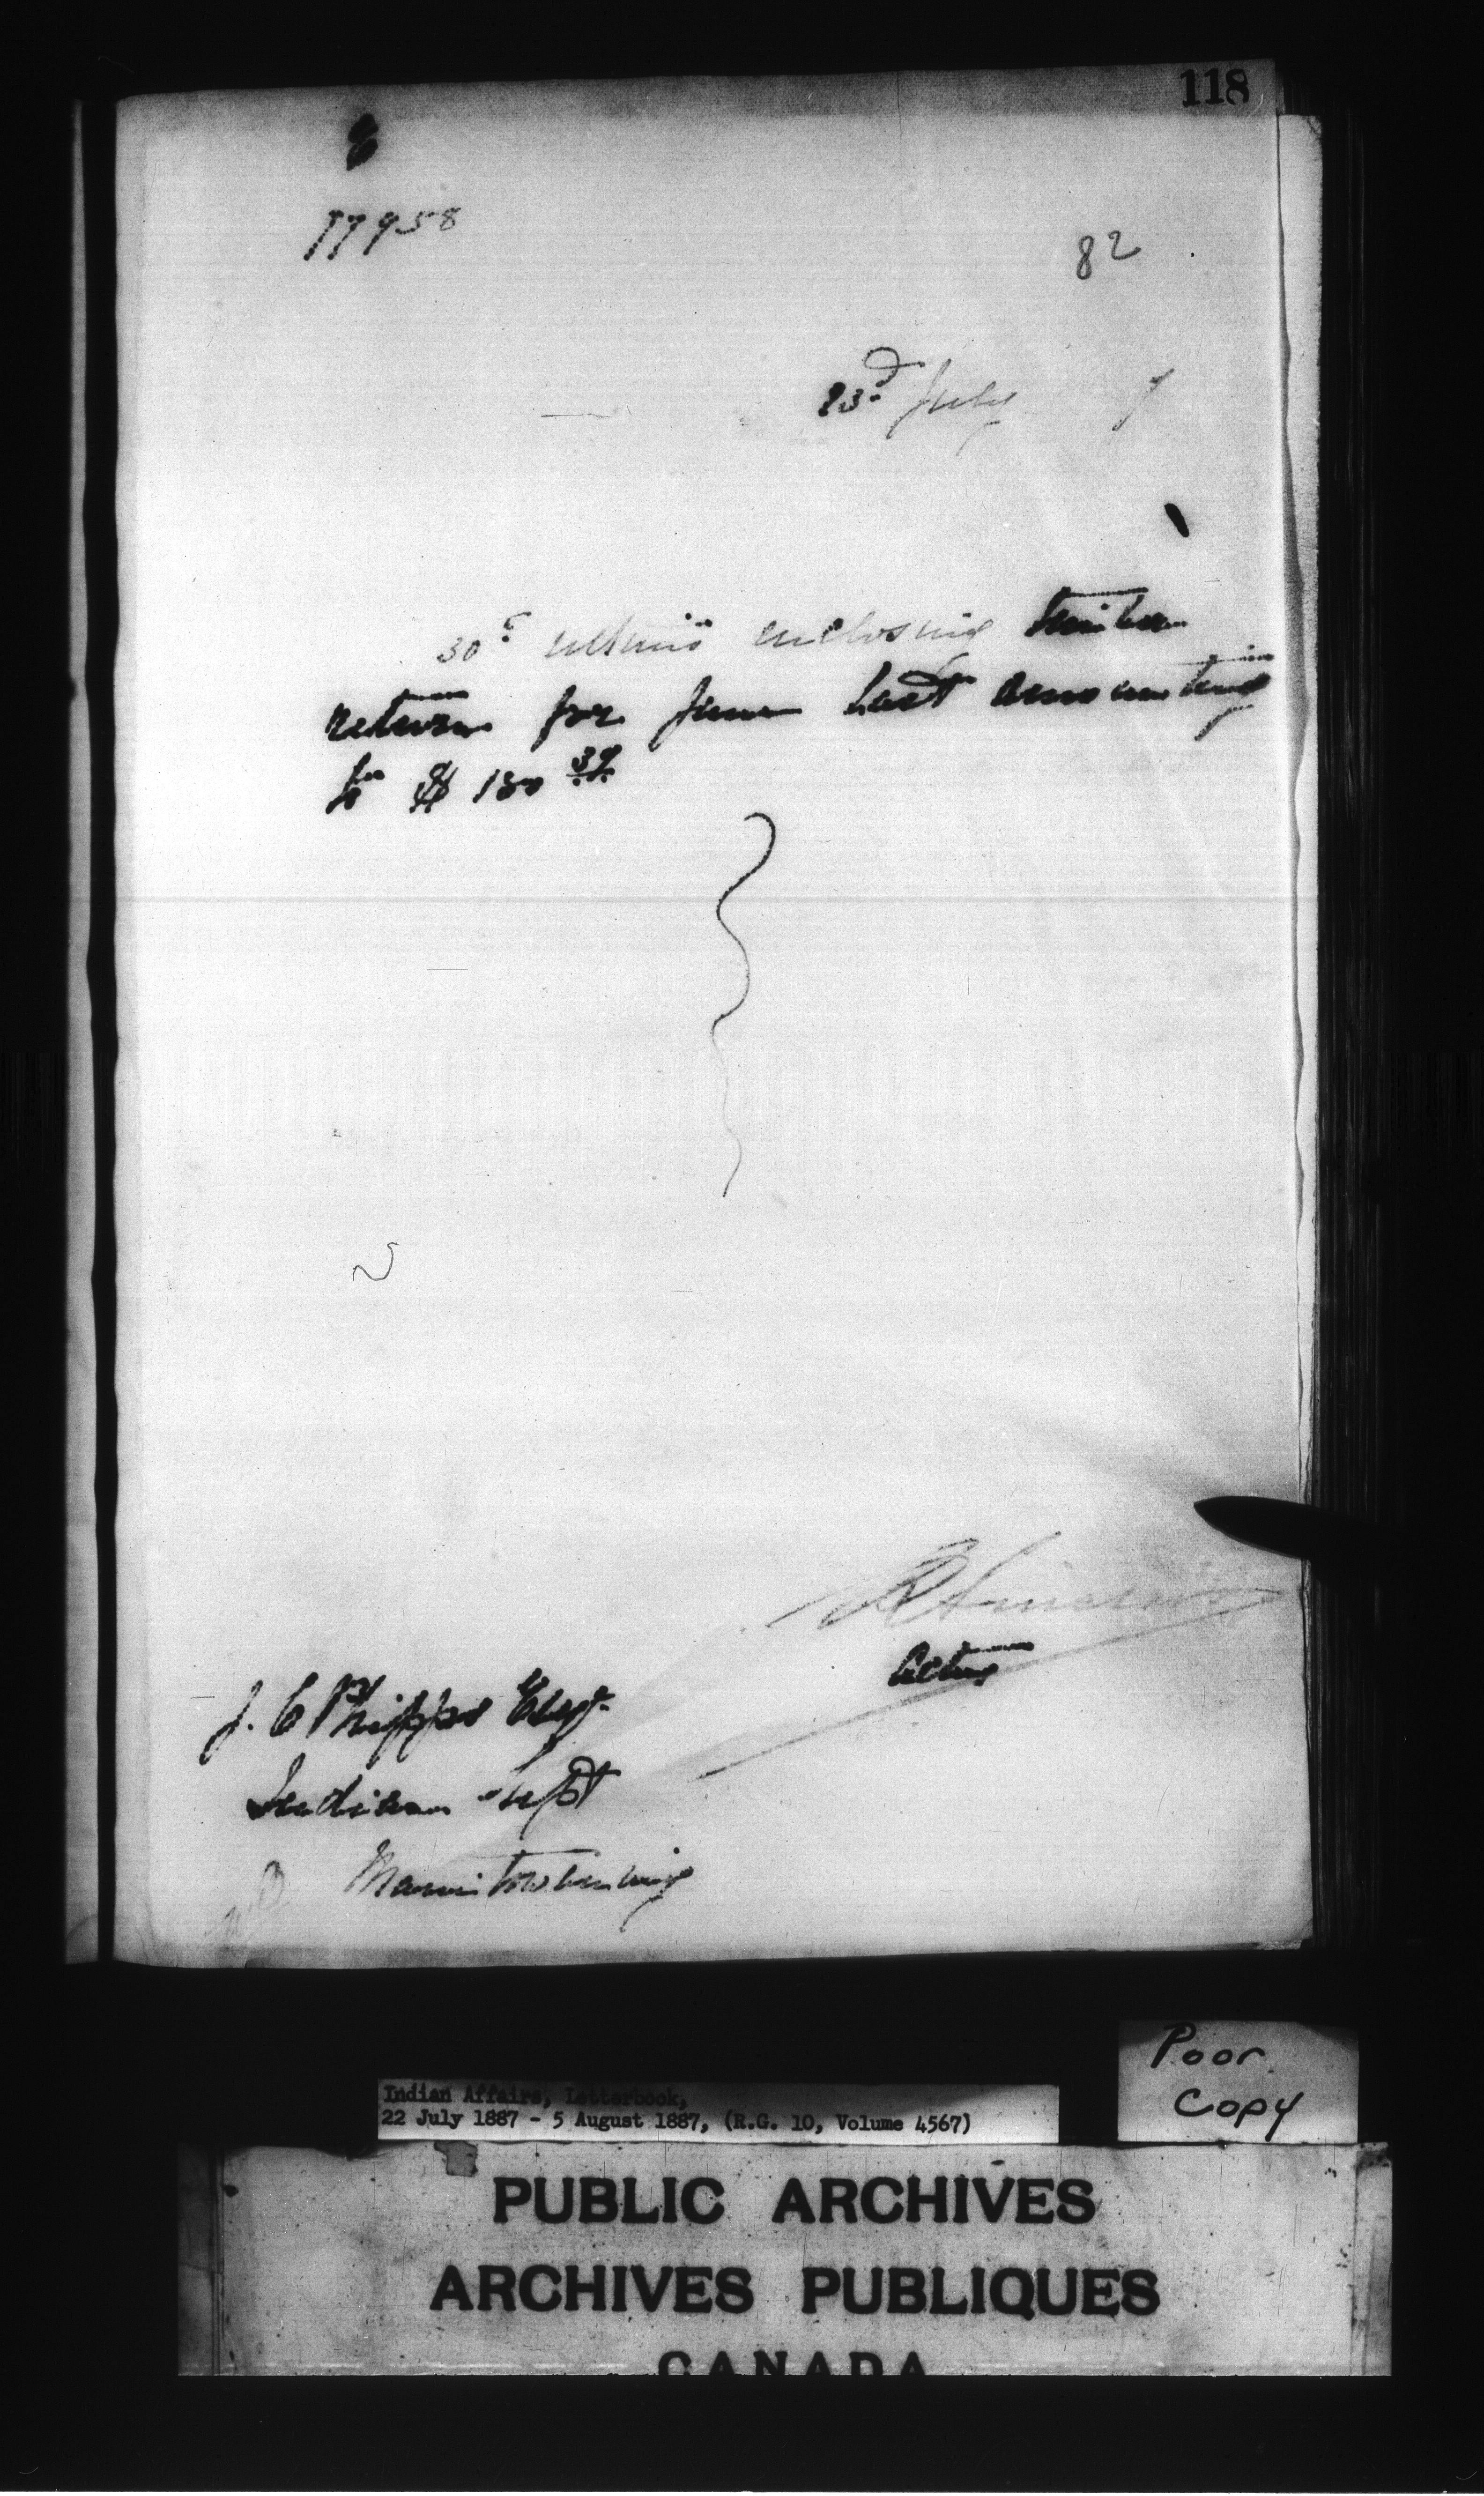 118
77958
82
23d July 7
30t ultimo enclosing timber
return for June last amounting
to $ 130 39
R Sinclair
Acting
J. C Phipps Esqr.
Indian Supt
Manitowaning
Poor
Copy
Indian Affairs, Letterbook,
22 July 1887 - 5 August 1887, (R.G. 10, Volume 4567)
PUBLIC ARCHIVES
ARCHIVES PUBLIQUES
CANADA